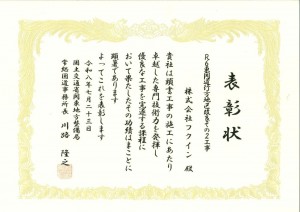 表彰状
R6東関道行方地区改良その2工事
株式会社フクイン 殿
貴社は頭書工事の施工にあたり
卓越した専門技術力を発揮し
優良な工事を完遂する課程に
おいて果たしたその功績はまことに
顕著であります
よってこれを表彰します
令和八年七月二十三日
国土交通省関東地方整備局
常総国道事務所長 川路 隆之